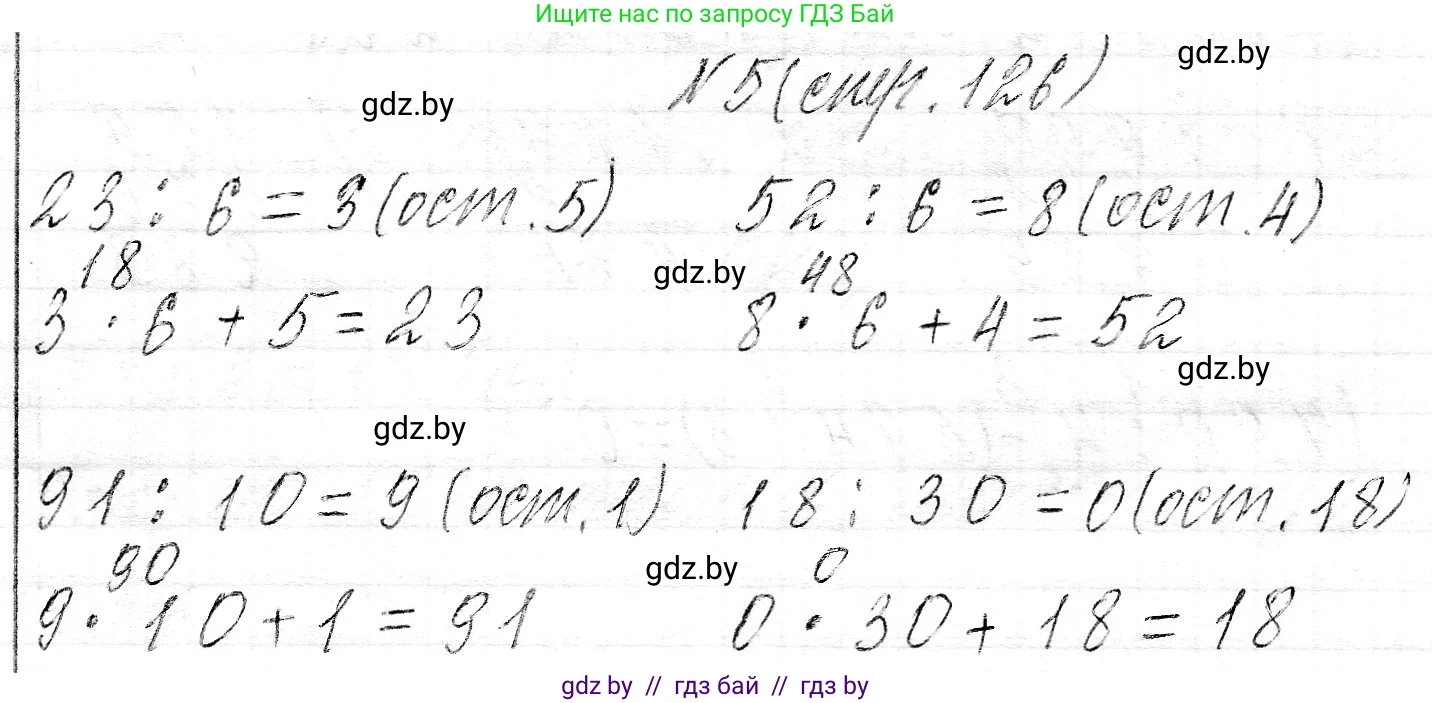 Ищите нас по запросу ГДЗ Бай
gdz.by
№5(стр. 126)
gdz.by
23 : 6 = 3 (ост. 5) 52 : 6 = 8 (ост. 4)
18 gdz.by 48
3 · 6 + 5 = 23 8 · 6 + 4 = 52
gdz.by
gdz.by
91 : 10 = 9 (ост. 1) 18 : 30 = 0 (ост. 18)
90 gdz.by 0
9 · 10 + 1 = 91 0 · 30 + 18 = 18
gdz by // гдз бай // гдз by